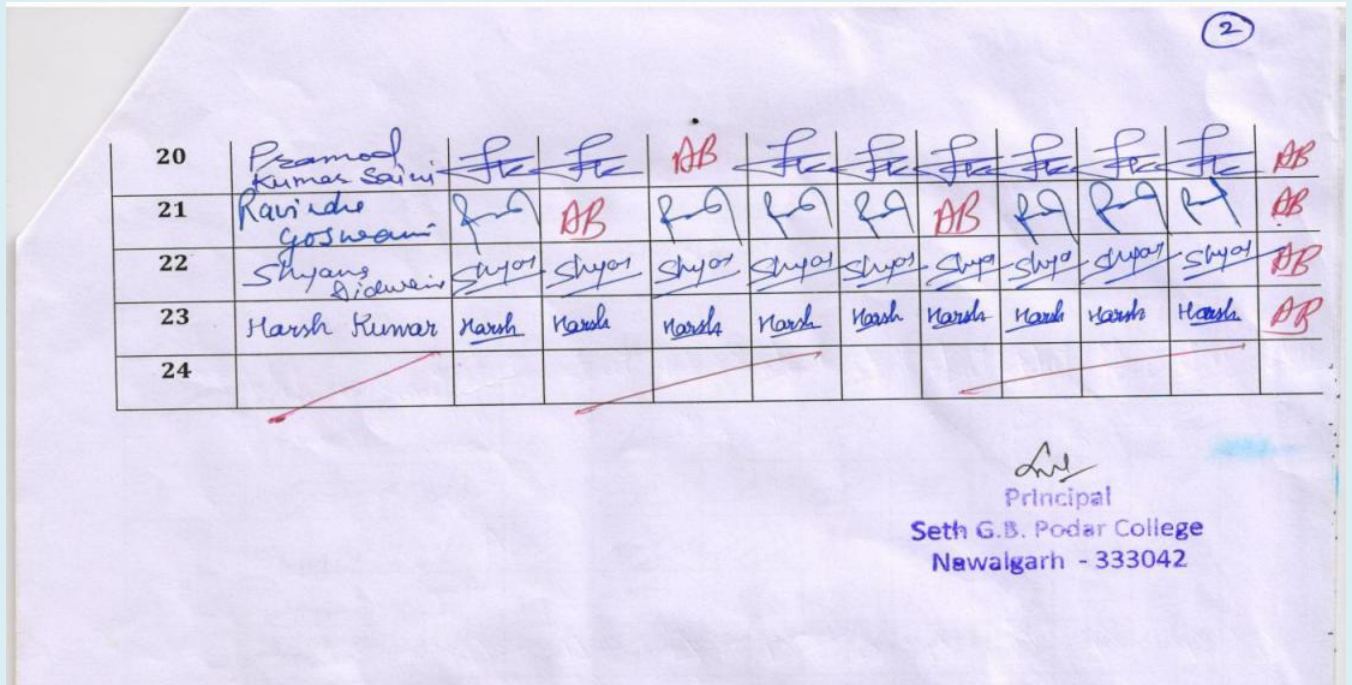 2
20 Pramod Kumar Saini AB AB
21 Ravindra Goswami AB AB AB
22 Shyam Shyam Shyam Shyam Shyam Shyam Shyam Shyam Shyam Shyam AB
23 Harsh Kumar Harsh Harsh Harsh Harsh Harsh Harsh Harsh Harsh Harsh AB
24
Principal
Seth G.B. Podar College
Nawalgarh - 333042